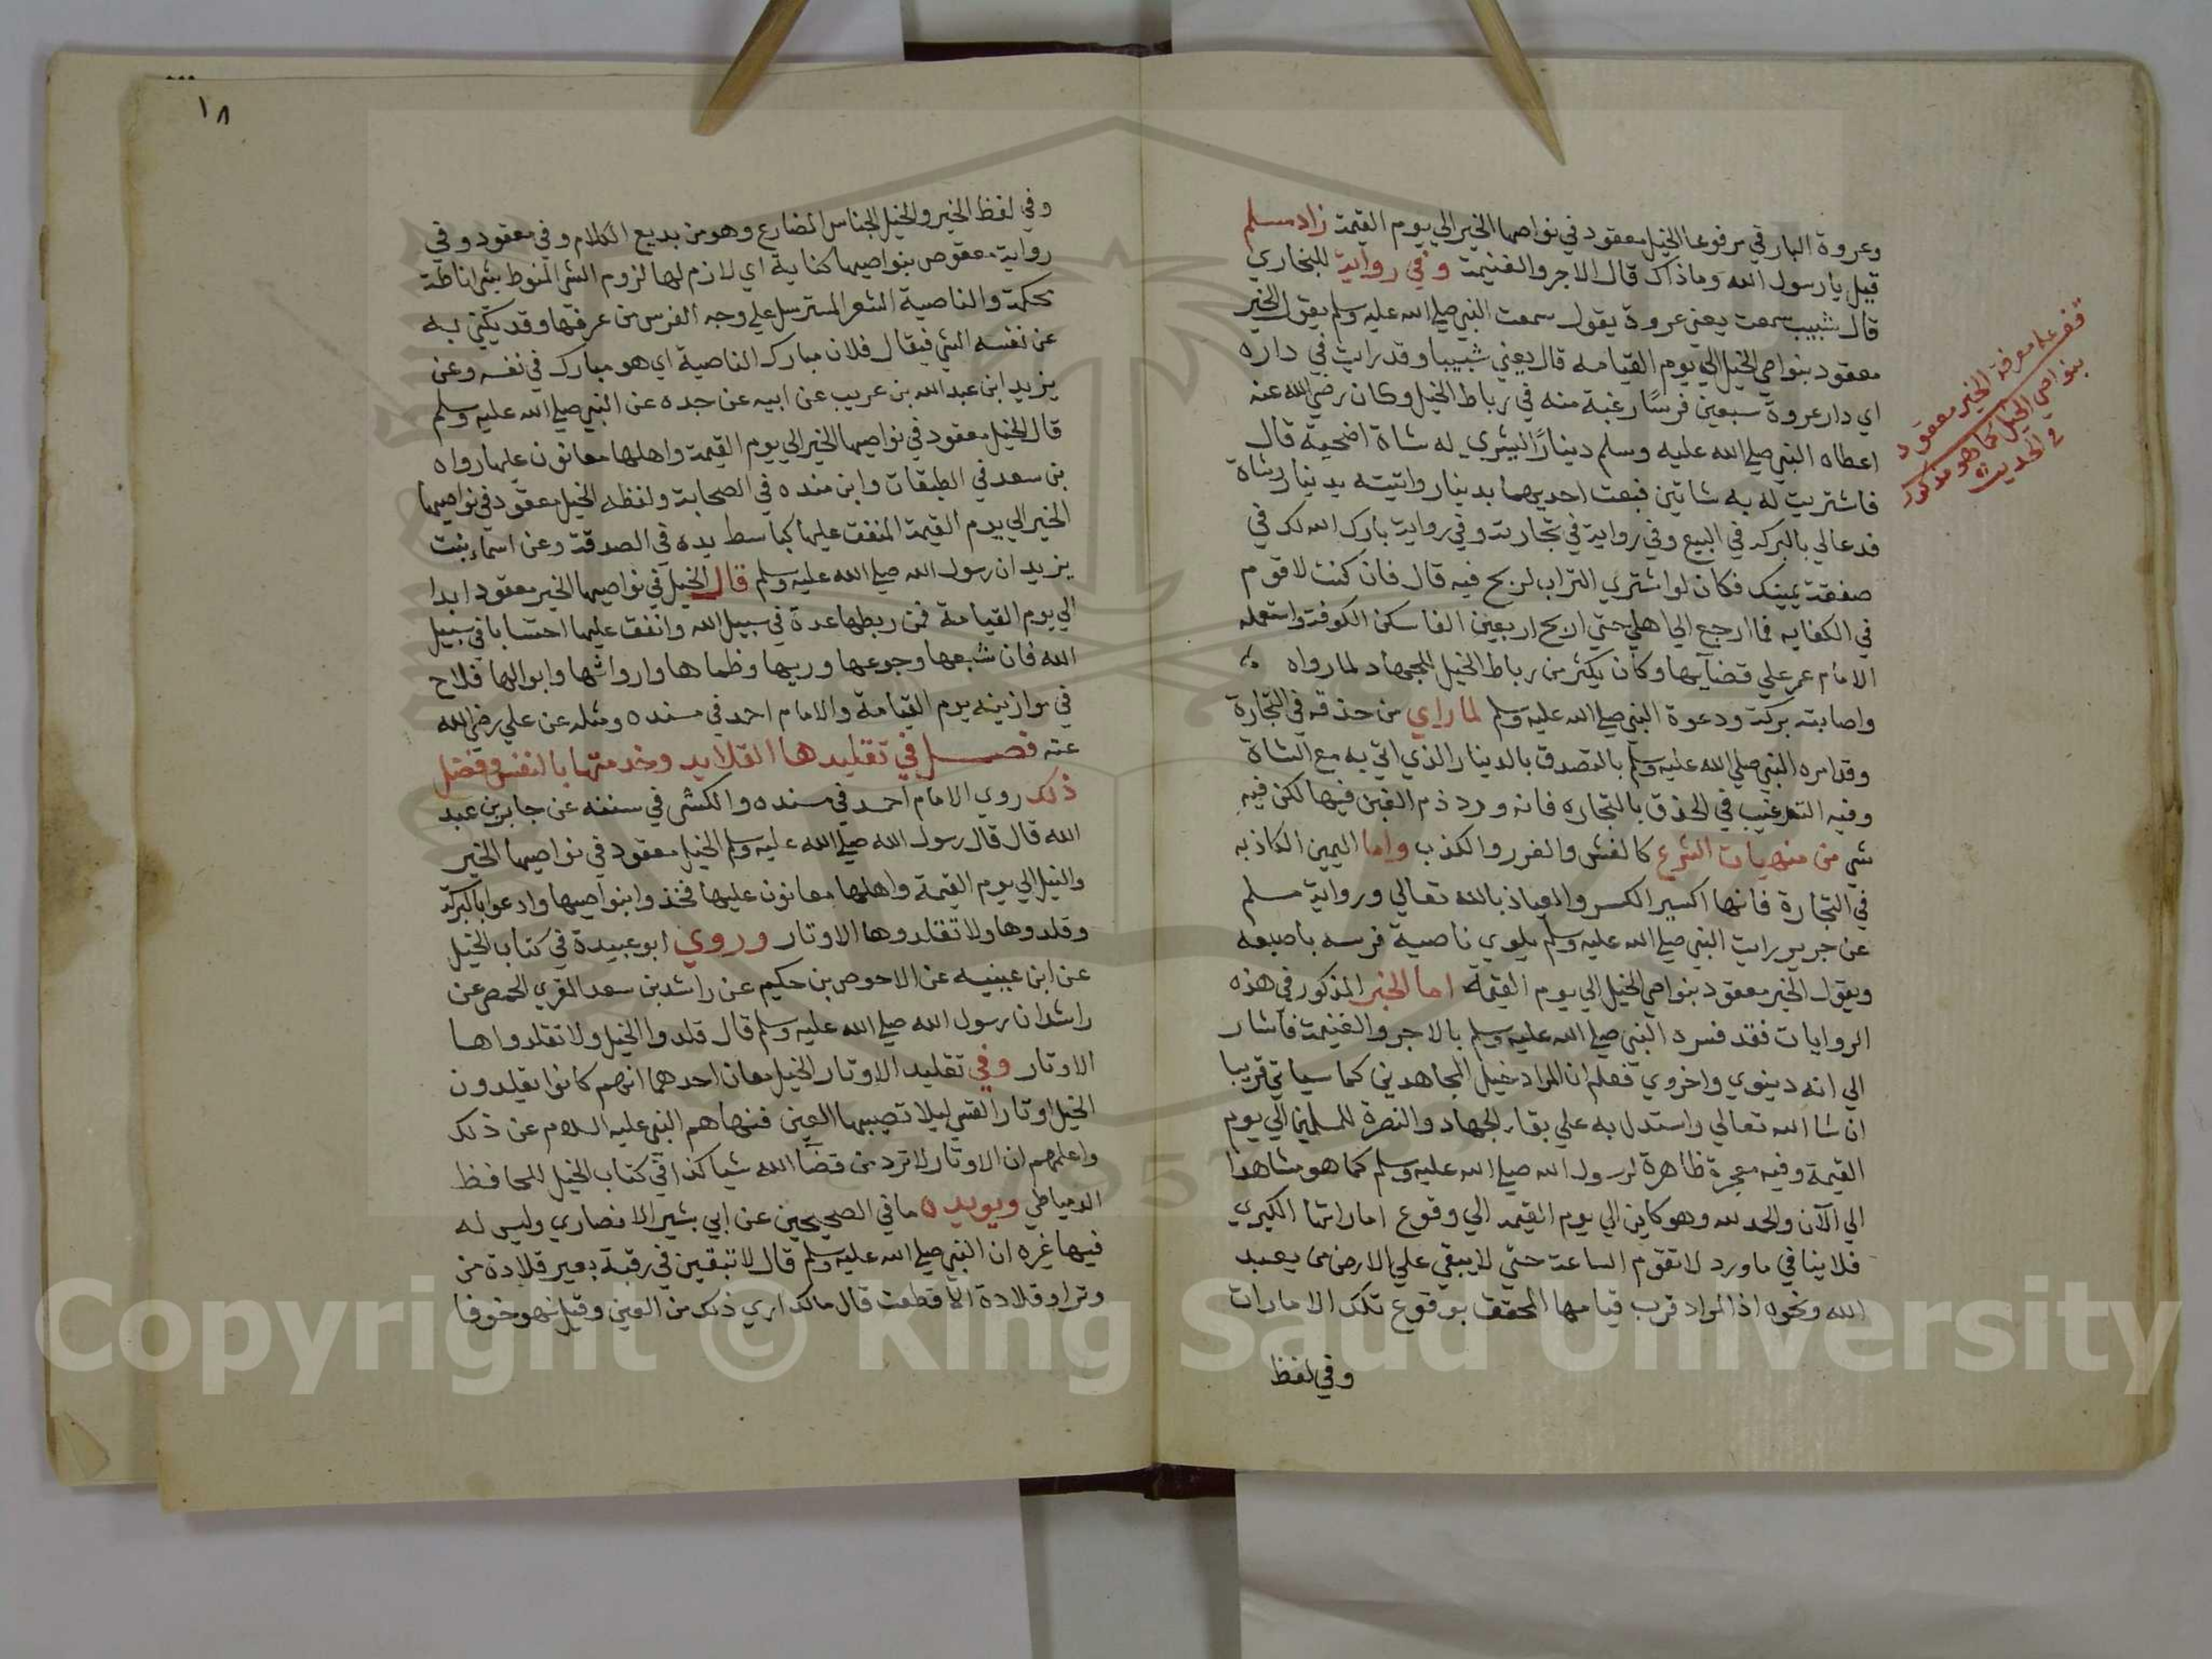 وعروة البارقي مرفوعا الخيل معقود في نواصها الخير الي يوم القيمة زاد مسلم
قيل يا رسول الله وما ذاك قال الاجر والغنيمة وفي رواية للبخاري
قال شبيب سمعت يعني عروة يقول سمعت النبي صلي الله عليه وسلم يقول الخير
معقود بنواصي الخيل الي يوم القيامه قال يعني شبيبا وقد رايت في داره
اي دار عروة سبعين فرسًا رغبة منه في رباط الخيل وكان رضي الله عنه
اعطاه النبي صلي الله عليه وسلم دينارًا ليشري له شاة اضحية قال
فاشتريت له به شاتين فبعت احديهما بدينار واتيته بدينار وشاة
فدعا لي بالبركة في البيع وفي رواية في تجارته وفي رواية بارك الله لك في
صفقة يمينك فكان لو اشتري التراب لربح فيه قال فان كنت لا قوم
في الكفايه فما ارجع الي اهلي حتي اربح اربعين الفا سكن الكوفة واستعمله
الامام عمر علي قضايها وكان يكثر من رباط الخيل للجهاد لما رواه
واصابته بركة ودعوة النبي صلي الله عليه وسلم لما راي من حذقه في التجارة
وقد امره النبي صلي الله عليه وسلم بالتصدق بالدينار الذي اتي به مع الشاة
وفيه الترغيب في الحذق بالتجاره فانه ورد ذم الغبن فيها لكن فيه
شي من منهيات الشرع كالغش والغرر والكذب واما اليمين الكاذبه
في التجارة فانها اكسير الكسر والعياذ بالله تعالي ورواية مسلم
عن جرير رايت النبي صلي الله عليه وسلم يلوي ناصية فرسه باصبعه
ويقول الخير معقود بنواصي الخيل الي يوم القيمة اما الخير المذكور في هذه
الروايات فقد فسره النبي صلي الله عليه وسلم بالاجر والغنيمة فاشار
الي انه دينوي واخروي فعلم ان المراد خيل المجاهدين كما سياتي قريبا
ان شا الله تعالي واستدل به علي بقاء الجهاد والنصرة للمسلمين الي يوم
القيمة وفيه معجزة ظاهرة لرسول الله صلي الله عليه وسلم كما هو مشاهدا
الي الآن والحمد لله وهو كاين الي يوم القيمه الي وقوع اماراتها الكبري
فلا ينافي ما ورد لا تقوم الساعة حتي لا يبقي علي الارض من يعبد
الله ونحوه اذ المراد قرب قيامها المحقق بوقوع تلك الامارات
وفي لفظ
قف علي معرفة الخير معقود
بنواصي الخيل كما هو مذكور
في الحديث
١٨
وفي لفظ الخير والخيل الجناس المضارع وهو من بديع الكلام وفي معقود وفي
رواية معقوص بنواصيها كناية اي لازم لها لزوم الشي المنوط بشي اناطة
محكمة والناصية الشعر المسترسل علي وجه الفرس من عرفها وقد يكني به
عن نفسه الشي فيقال فلان مبارك الناصية اي هو مبارك في نفسه وعن
يزيد ابن عبد الله بن عريب عن ابيه عن جده عن النبي صلي الله عليه وسلم
قال الخيل معقود في نواصيها الخير الي يوم القيمة واهلها معانون عليها رواه
بن سعد في الطبقات وابن منده في الصحابة ولفظه الخيل معقود في نواصيها
الخير الي يوم القيمة المنفق عليها كباسط يده في الصدقة وعن اسماء بنت
يزيد ان رسول الله صلي الله عليه وسلم قال الخيل في نواصيها الخير معقود ابدا
الي يوم القيامة فمن ربطها عدة في سبيل الله وانفق عليها احتسابا في سبيل
الله فان شبعها وجوعها وريها وظماها وارواثها وابوالها فلاح
في موازينه يوم القيامة والامام احمد في مسنده ومثله عن علي رضي الله
عنه فصل في تقليدها القلايد وخدمتها بالنفس وفضل
ذلك روي الامام احمد في مسنده والكشي في سننه عن جابر بن عبد
الله قال قال رسول الله صلي الله عليه وسلم الخيل معقود في نواصيها الخير
والنيل الي يوم القيمة واهلها معانون عليها فخذوا بنواصيها وادعوا بالبركة
وقلدوها ولا تقلدوها الاوتار وروي ابو عبيدة في كتاب الخيل
عن ابن عيينه عن الاحوص بن حكيم عن راشد بن سعد المقري الحمصي عن
راشد ان رسول الله صلي الله عليه وسلم قال قلدوا الخيل ولا تقلدواها
الاوتار وفي تقليد الاوتار الخيل معان احدهما انهم كانوا يقلدون
الخيل اوتار القسي ليلا تصيبها العين فنهاهم النبي عليه السلام عن ذلك
واعلمهم ان الاوتار لا ترد من قضآ الله شيا كذا في كتاب الخيل للحافظ
الدمياطي ويويده ما في الصحيحين عن ابي بشير الانصاري وليس له
فيها غيره ان النبي صلي الله عليه وسلم قال لا تبقين في رقبة بعير قلادة من
وتر او قلادة الا قطعت قال مالك اري ذلك من العين وقيل نهو خوفا
Copyright © King Saud University